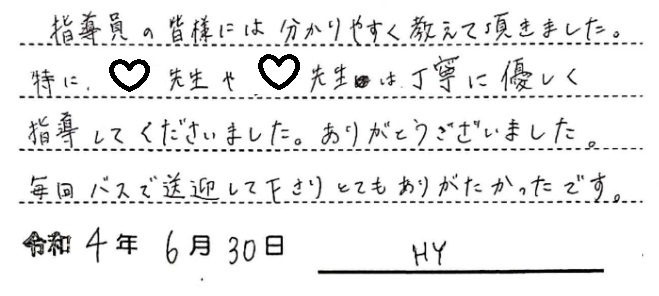 指導員の皆様には分かりやすく教えて頂きました。
特に、♡先生や♡先生は丁寧に優しく
指導してくださいました。ありがとうございました。
毎回バスで送迎して下さりとてもありがたかったです。
令和4年6月30日 HY